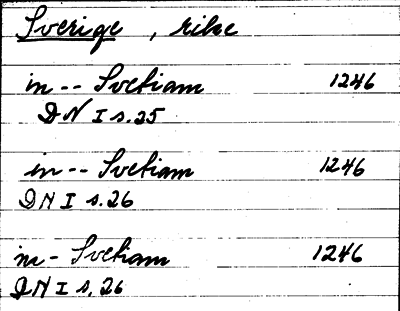 Sverige, rike
in -- Svetiam 1246
DN I s. 25
in -- Svetiam 1246
DN I s. 26
in - Svetiam 1246
DN I s. 26